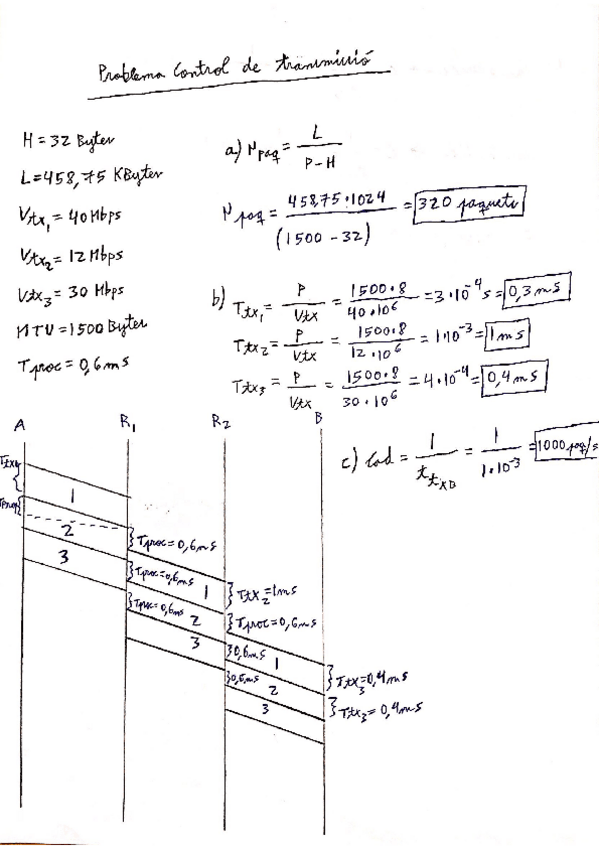 Problema Control de transmissió
H = 32 Bytes
L = 458,75 KBytes
Vtx1 = 40 Mbps
Vtx2 = 12 Mbps
Vtx3 = 30 Mbps
MTU = 1500 Bytes
Tproc = 0,6 ms
a) Npaq = L / P-H
Npaq = 458,75·1024 / (1500-32) = 320 paquets
b) Ttx1 = P / Vtx = 1500·8 / 40·10^6 = 3·10^-4 s = 0,3 ms
Ttx2 = P / Vtx = 1500·8 / 12·10^6 = 1·10^-3 = 1 ms
Ttx3 = P / Vtx = 1500·8 / 30·10^6 = 4·10^-4 = 0,4 ms
c) Cad = 1 / ttx = 1 / 1·10^-3 = 1000 paq/s
A R1 R2 B
Ttx1
1
2
3
Tproc = 0,6 ms
Tproc = 0,6 ms
Tproc = 0,6 ms
1
2
3
Ttx2 = 1 ms
Tproc = 0,6 ms
0,6 ms
0,6 ms
1
2
3
Ttx3 = 0,4 ms
Ttx3 = 0,4 ms